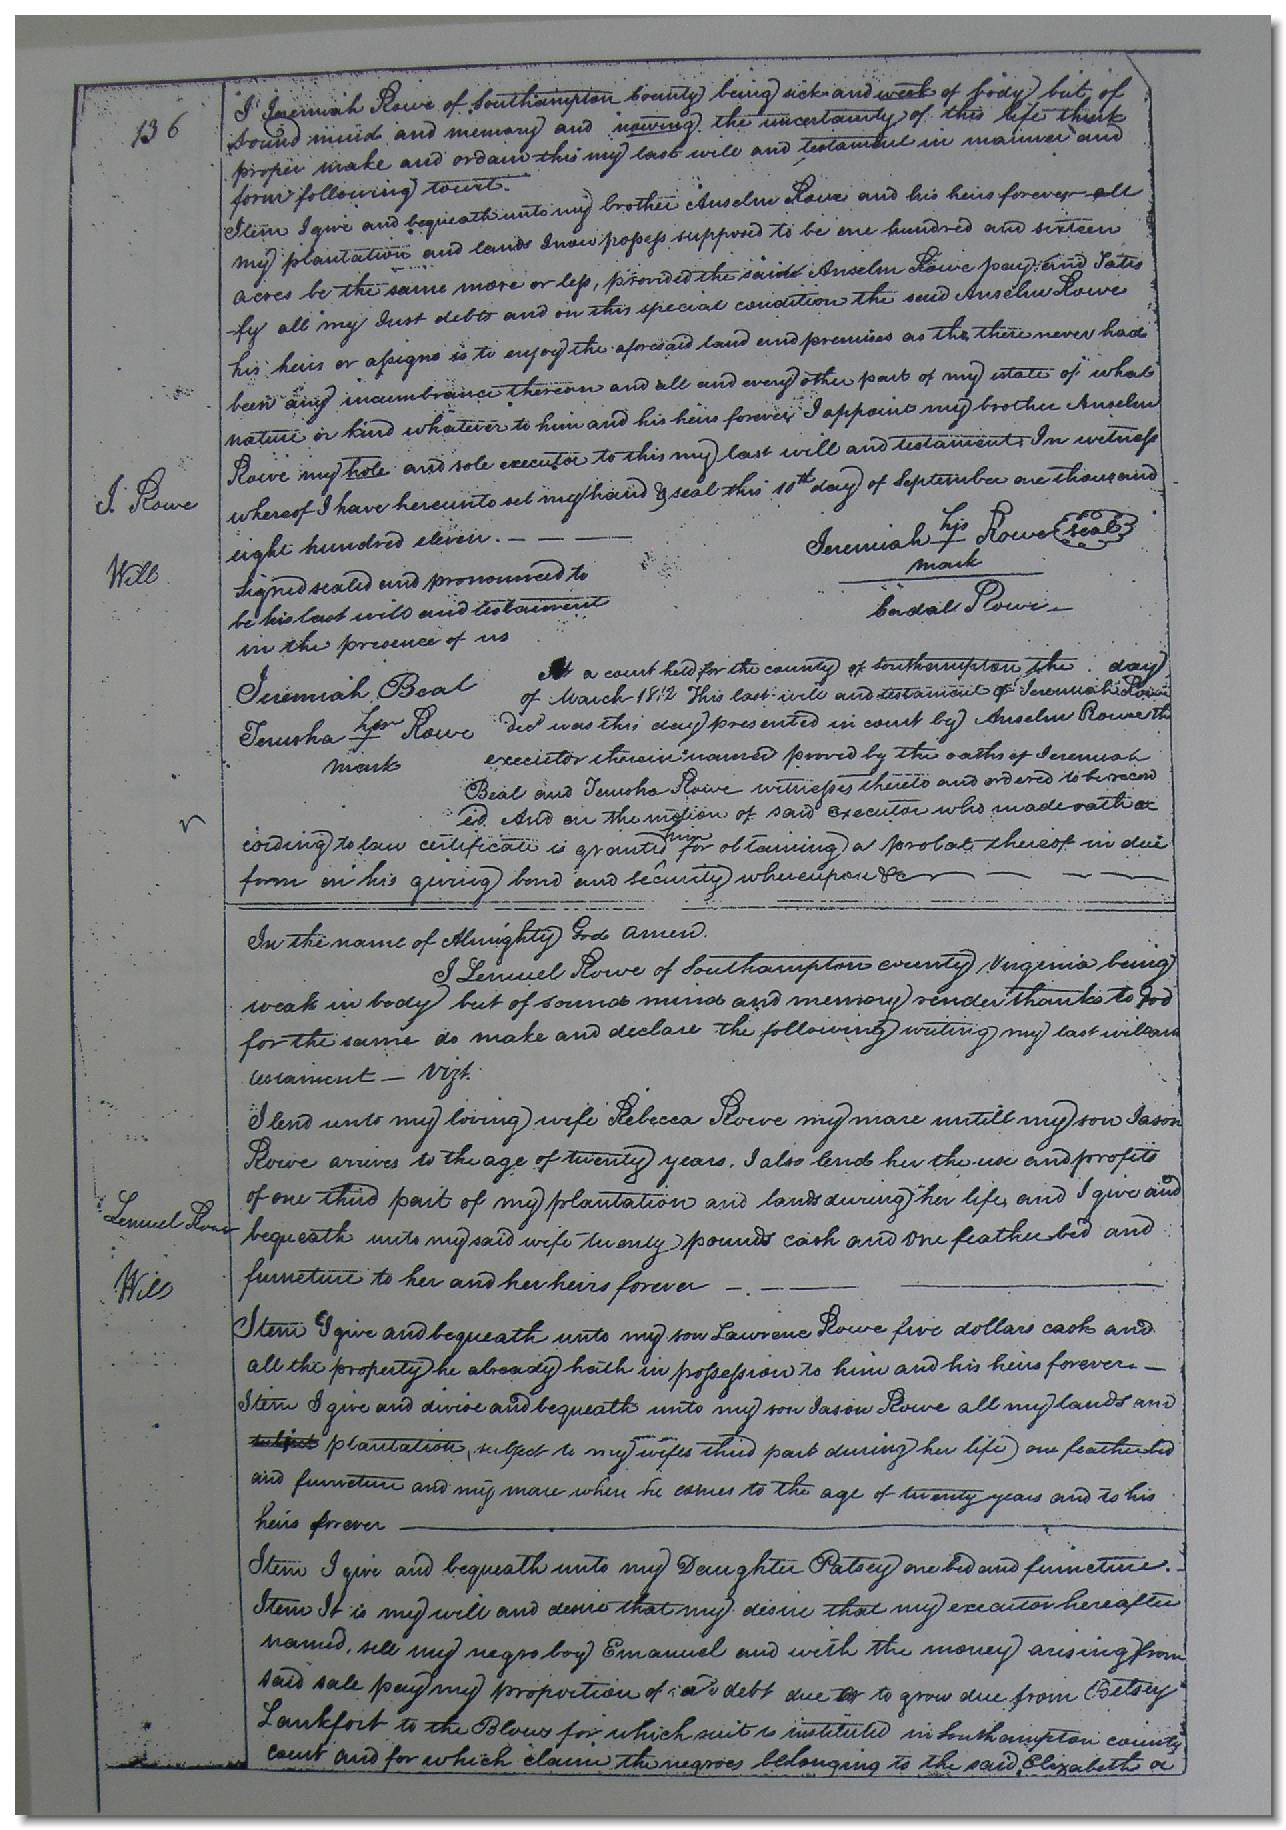 136
I Jeremiah Rowe of Southampton County being sick and week of body but of
sound mind and memory and nowing the uncertainty of this life think
proper make and ordain this my last will and testament in manner and
form following towit.
Item I give and bequeath unto my brother Anselm Rowe and his heirs forever all
my plantation and lands I now possess supposed to be one hundred and sixteen
acres be the same more or less, provided the said Anselm Rowe pay and Satis
fy all my Just debts and on this special condition the said Anselm Rowe
his heirs or assigns is to enjoy the aforesaid land and premises as tho there never had
been any incumbrance thereon and all and every other part of my estate of what
nature or kind whatever to him and his heirs forever, I appoint my brother Anselm
Rowe my hole and sole executor to this my last will and testament. In witness
whereof I have hereunto set my hand & seal this 10th day of September one thousand
eight hundred eleven.
J. Rowe
Will
Jeremiah his Rowe seal
mark
signed sealed and pronounced to
be his last will and testament
in the presence of us
Rowe
Jeremiah Beal
Jerusha her Rowe
mark
At a court held for the county of Southampton the day
of March 1812 This last will and testament of Jeremiah Rowe
decd was this day presented in court by Anselm Rowe the
executor therein named proved by the oaths of Jeremiah
Beal and Jerusha Rowe witnesses thereto and ordered to be record
ed. And on the motion of said executor who made oath ac
cording to law certificate is granted him for obtaining a probat thereof in due
form on his giving bond and security whereupon &c
In the name of Almighty God amen.
I Lemuel Rowe of Southampton county Virginia being
weak in body but of sound mind and memory render thanks to God
for the same do make and declare the following writing my last will and
testament — Vizt.
I lend unto my loving wife Rebecca Rowe my mare untill my son Jason
Rowe arrives to the age of twenty years. I also lend her the use and profits
of one third part of my plantation and lands during her life, and I give and
bequeath unto my said wife twenty pounds cash and one feather bed and
furneture to her and her heirs forever
Lemuel Rowe
Will
Item I give and bequeath unto my son Lawrence Rowe five dollars cash and
all the property he already hath in possession to him and his heirs forever. —
Item I give and divise and bequeath unto my son Jason Rowe all my lands and
subject plantation, subject to my wifes third part during her life) one feather bed
and furneture and my mare when he comes to the age of twenty years and to his
heirs forever
Item I give and bequeath unto my Daughter Patsey one bed and furneture.
Item It is my will and desire that my desire that my executor hereafter
named, sell my negro boy Emanuel and with the money arising from
said sale pay my proportion of a debt due or to grow due from Betsey
Lankfort to the Blows for which suit is instituted in Southampton county
court and for which claim the negroes belonging to the said Elizabeth a